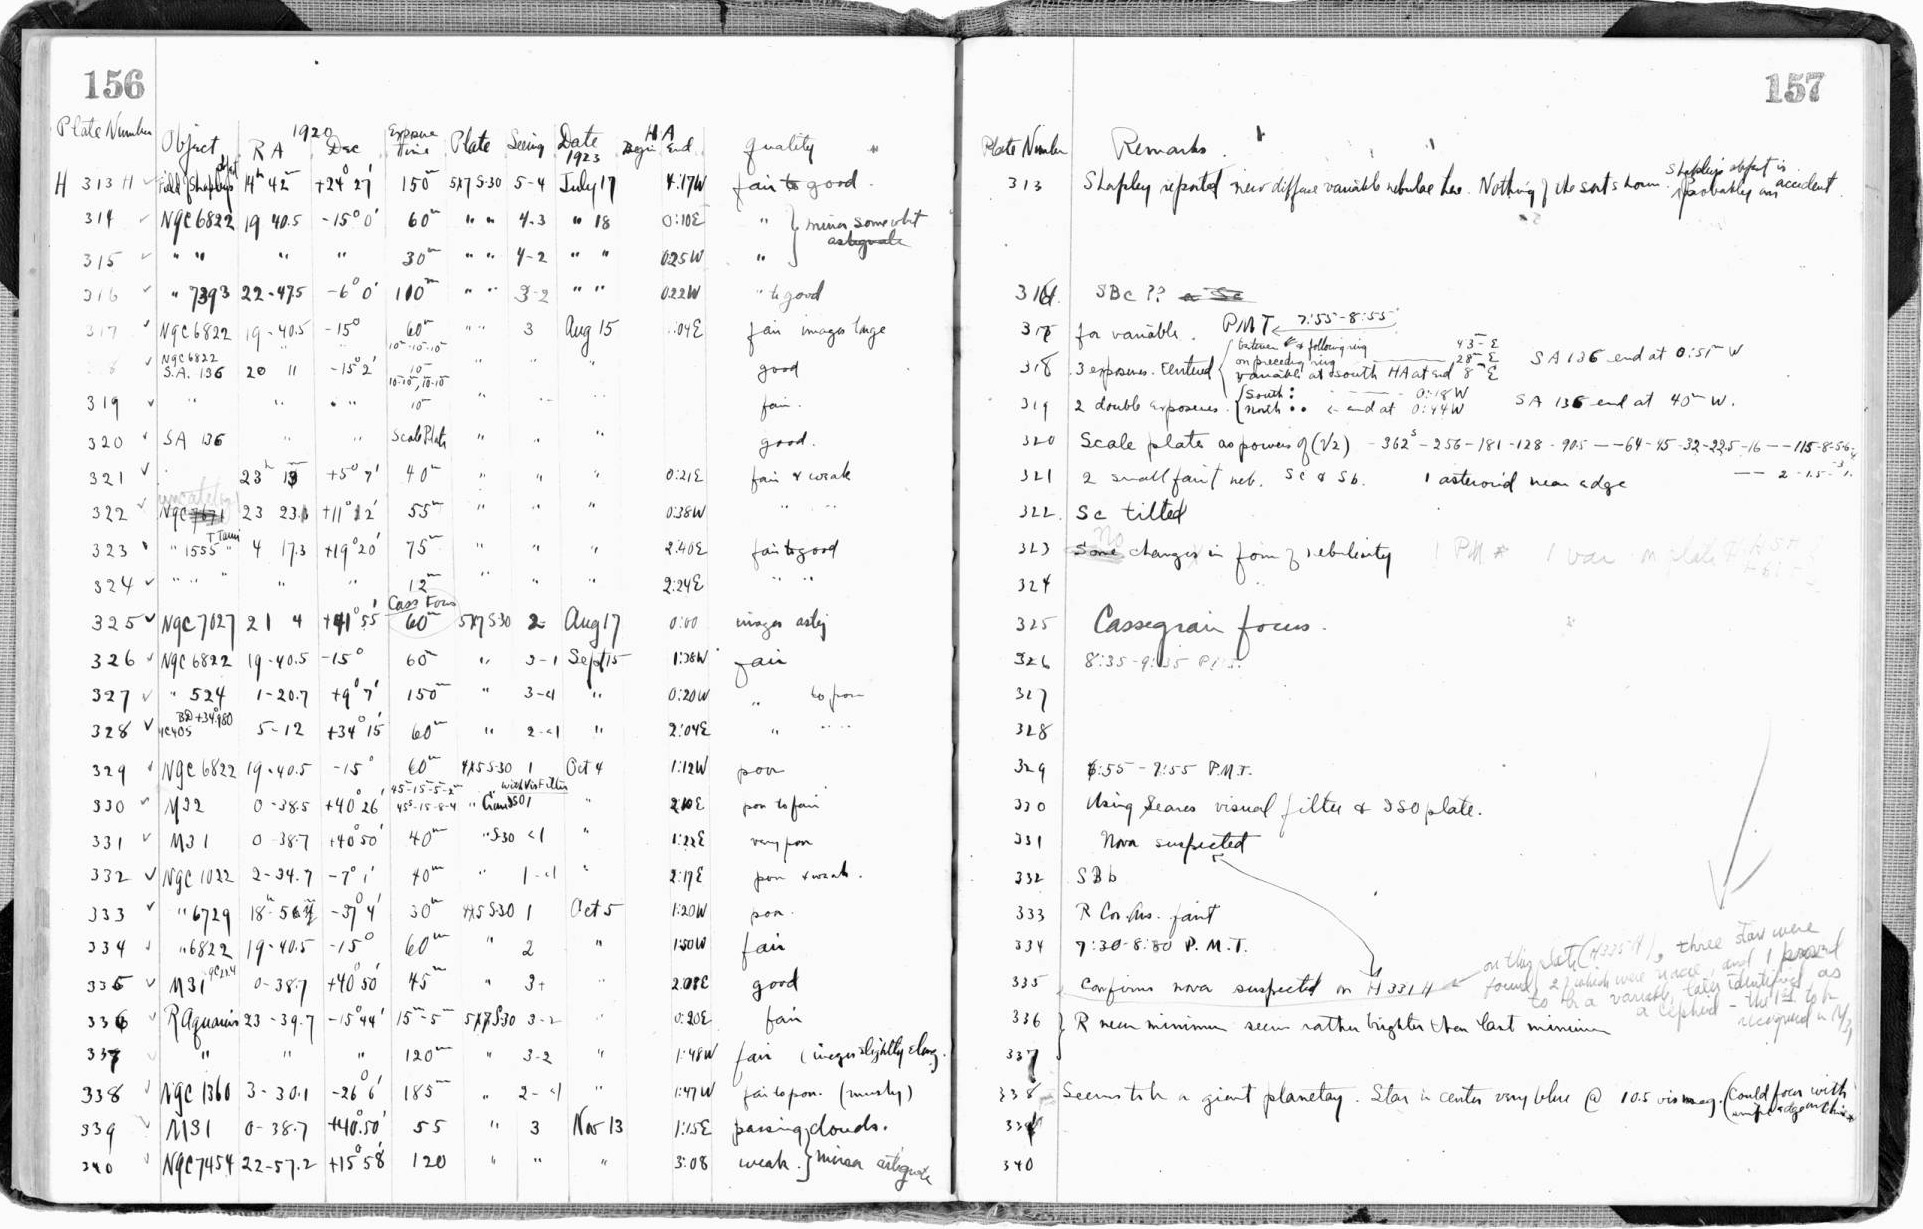 156
Plate Number Object RA 1920 Dec Exposure time Plate Seeing Date 1923 HA Begin End quality
H 313 H Field Shapley's object 14h 42m +24° 27' 150m 5x7 S-30 5-4 July 17 4:17W fair to good.
314 NGC 6822 19 40.5 -15° 0' 60m " " 4-3 " 18 0:10E " } mirror somewhat
astigmatic
315 " " " " 30m " " 4-2 " " 0:25W "
316 " 7393 22-47.5 -6° 0' 110m " " 3-2 " " 0:22W " to good
317 NGC 6822 19-40.5 -15° 60m " " 3 Aug 15 1:04E fair images large
318 NGC 6822 " " 10m-10m-10m
S.A. 136 20 " -15° 2' 10m " " " good
319 " " " 10-10, 10-10
10m " " " fair.
320 SA 136 " " Scale Plate " " " good.
321 23h 13m +5° 7' 40m " " " 0:21E fair & weak
uncatalog
322 NGC 7671 23 23.1 +11° 12' 55m " " " 0:38W " "
323 " 1555 T Tauri " 4 17.3 +19° 20' 75m " " " 2:40E fair to good
324 " " " " " 12m " " " 2:24E " "
Cass Focus
325 NGC 7027 21 4 +41° 55' 60m 5x7 S30 2 Aug 17 0:00 images astig
326 NGC 6822 19-40.5 -15° 60m " 3-1 Sept 15 1:38W fair
327 " 524 1-20.7 +9° 7' 150m " 3-<1 " 0:20W " to poor
BD +34°980
328 IC 405 5-12 +34° 15' 60m " 2-<1 " 2:04E " " "
329 NGC 6822 19-40.5 -15° 60m 4x5 S30 1 Oct 4 1:12W poor
45m-15-5-2m with Vis Filter
330 M32 0-38.5 +40° 26' 45s-15-8-4 " ISO 1 " 2:10E poor to fair
331 M31 0-38.7 +40° 50' 40m " S30 <1 " 1:22E very poor
332 NGC 1022 2-34.7 -7° 1' 40m " 1-<1 " 2:17E poor & weak.
333 " 6729 18h-56m -37° 4' 30m 4x5 S30 1 Oct 5 1:20W poor.
334 " 6822 19-40.5 -15° 60m " 2 " 1:50W fair
335 M31 0-38.7 +40° 50' 45m " 3+ " 2:08E good
336 R Aquarius 23-39.7 -15° 44' 15m-5m 5x7 S30 3-2 " 0:20E fair
337 " " " 120m " 3-2 " 1:48W fair (images slightly elong.
338 NGC 1360 3-30.1 -26° 6' 185m " 2-<1 " 1:47W fair to poor. (mushy)
339 M31 0-38.7 +40° 50' 55 " 3 Nov 13 1:15E passing clouds.
340 NGC 7454 22-57.2 +15° 58' 120 " " " 3:08 weak. } mirror astigmatic
157
Plate Number Remarks.
313 Shapley reported new diffuse variable nebulae here. Nothing of the sort shown. Shapley's object is
probably an accident.
316 SBc ??
317 for variable. PMT 7:55-8:55
318 3 exposures. Centered { between & following ring 43m E
on preceding ring 28m E
variable at south HA at end 8m E SA 136 end at 0:51m W
319 2 double exposures. { South : 0:18W
north : <- end at 0:44W SA 136 end at 40m W.
320 Scale plates as powers of (√2) - 362s - 256 - 181 - 128 - 90.5 -- 64 - 45 - 32 - 22.5 - 16 -- 11.5 - 8 - 5.6 - 4
-- 2 - 1.5 - 1.
321 2 small faint neb. Sc & Sb. 1 asteroid near edge
322. Sc tilted
No
323 Some changes in form of nebulosity 1 PM * 1 var on plate
324
325 Cassegrain focus.
326 8:35-9:35 P.M.T.
327
328
329 6:55-7:55 P.M.T.
330 Using Seares visual filter & ISO plate.
331 Nova suspected
332 SBb
333 R Cor. Aus. faint
334 7:30-8:30 P.M.T.
335 Confirms nova suspected on H 331 H
on this plate (H335H), three stars were
found, 2 of which were novae, and 1 proved
to be a variable, later identified as
a cepheid - the 1st to be
recognized in M31
336 } R near minimum seems rather brighter than last minimum
337
338 Seems to be a giant planetary. Star in center very blue @ 10.5 vis mag. (Could focus with
knife edge on this *
339
340